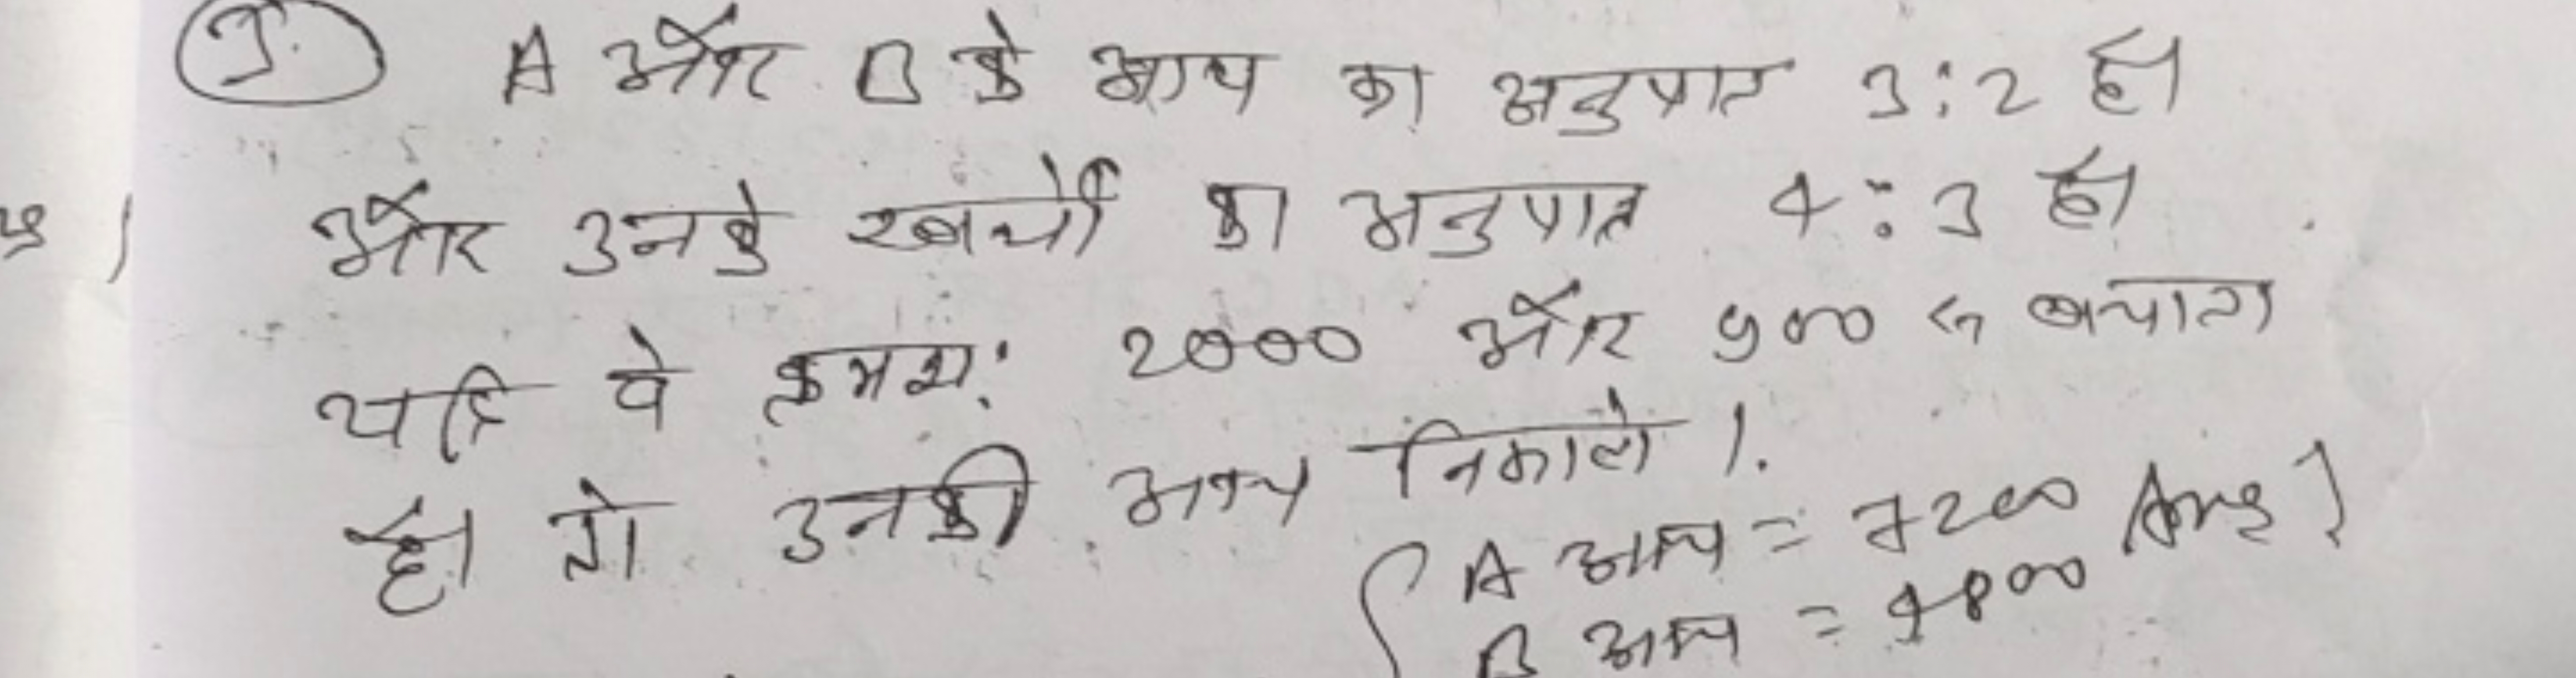 3. A और B के आय का अनुपात 3:2 है।
और उनके खर्चो का अनुपात 4:3 है।
यदि वे क्रमशः 2000 और 900 रु बचाता
है। तो उनकी आय निकालो।
A आय = 7200 Ans
B आय = 4800